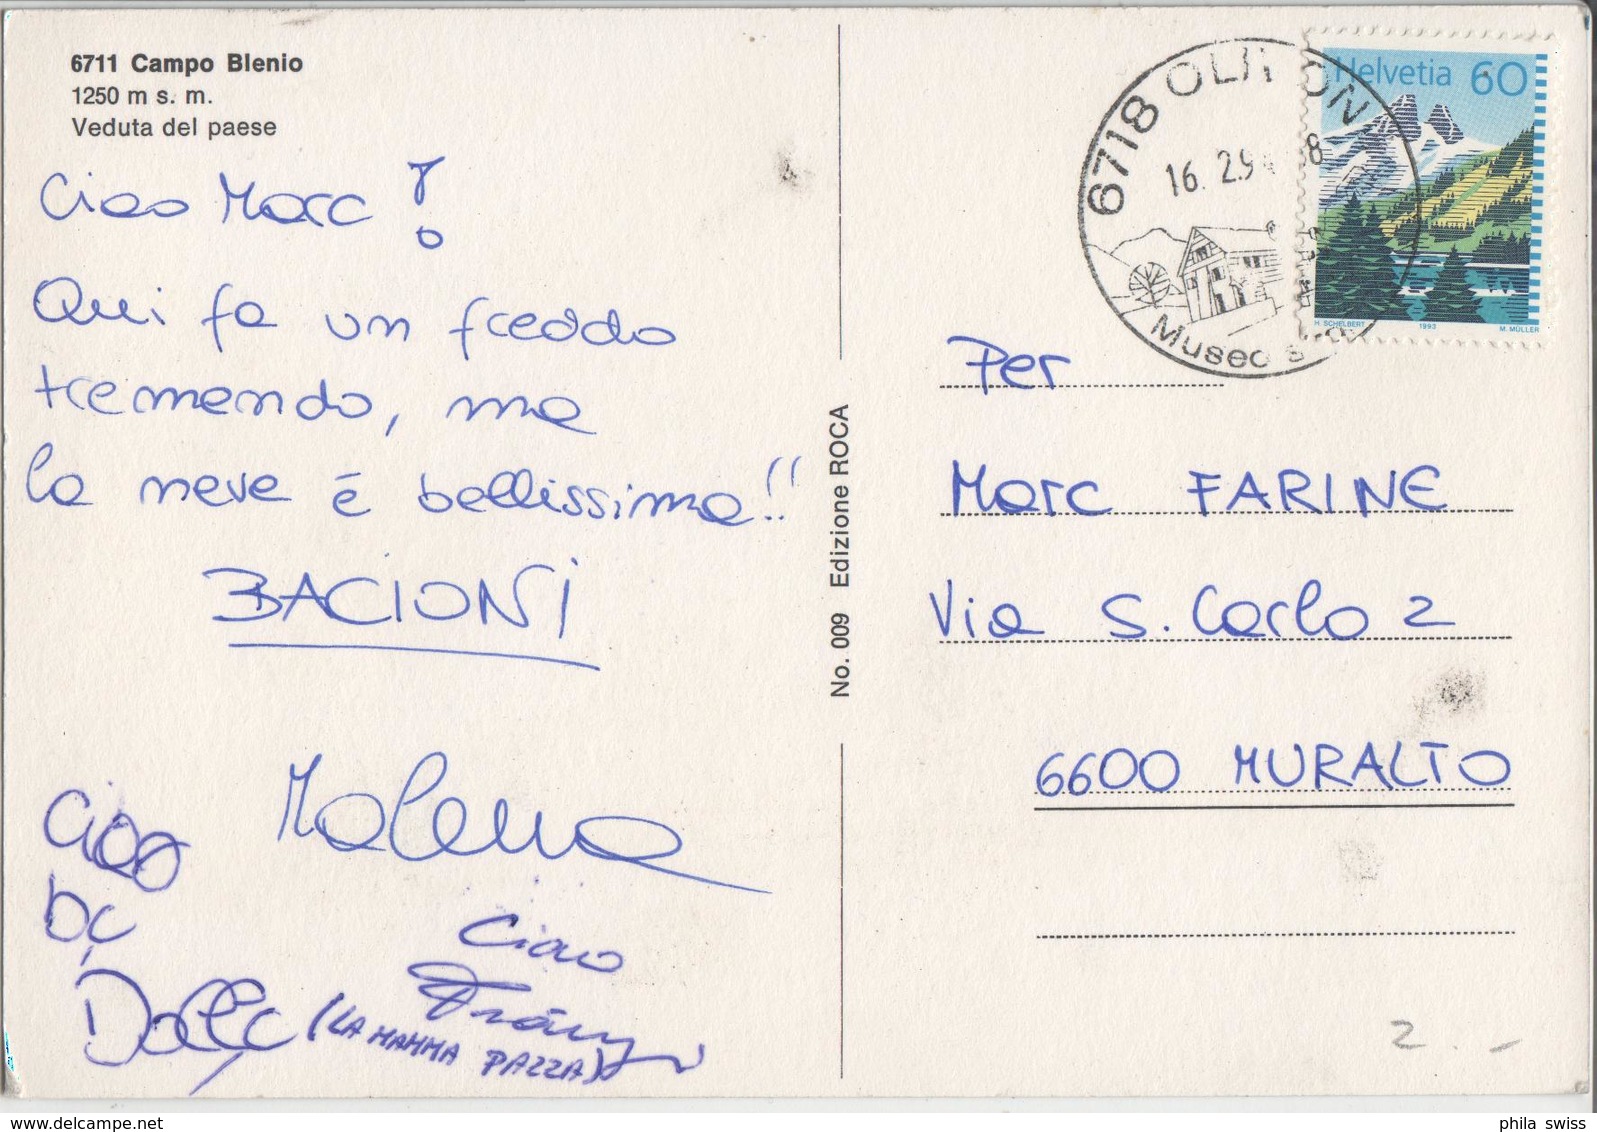 6711 Campo Blenio
1250 m s. m.
Veduta del paese
Ciao Marc!
Qui fa un freddo
tremendo, ma
la neve é bellissima!!
BACIONI
Malena
Ciao
by
Dolly (LA MAMMA PAZZA)
Ciao
Franz
No. 009 Edizione ROCA
6718 OLIVONE
16. 2.94
Museo
Helvetia 60
H. SCHELBERT 1993 M. MÜLLER
Per
Marc FARINE
Via S. Carlo 2
6600 MURALTO
2.-
phila swiss